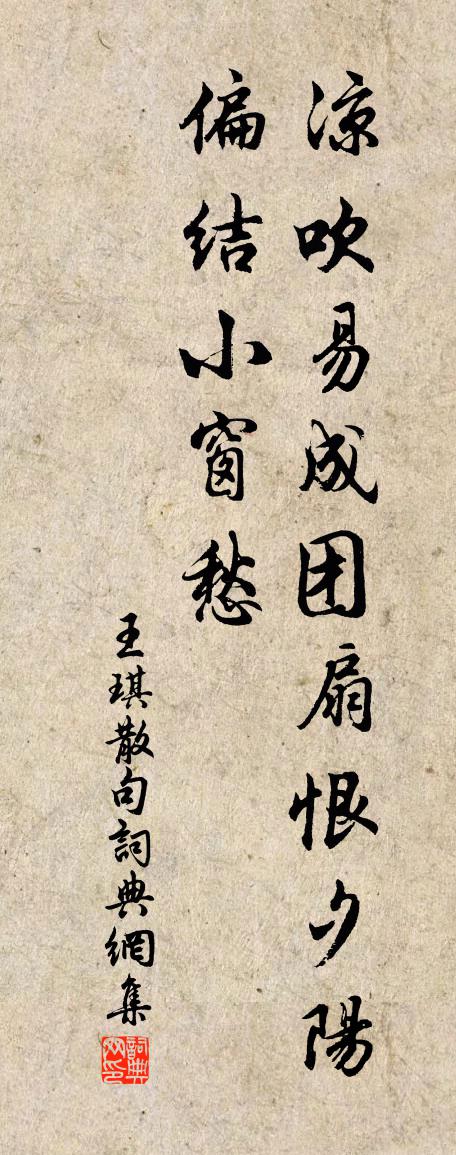 凉吹易成团扇恨夕陽
偏结小窗愁
王琪散句詞典網集
詞典网印